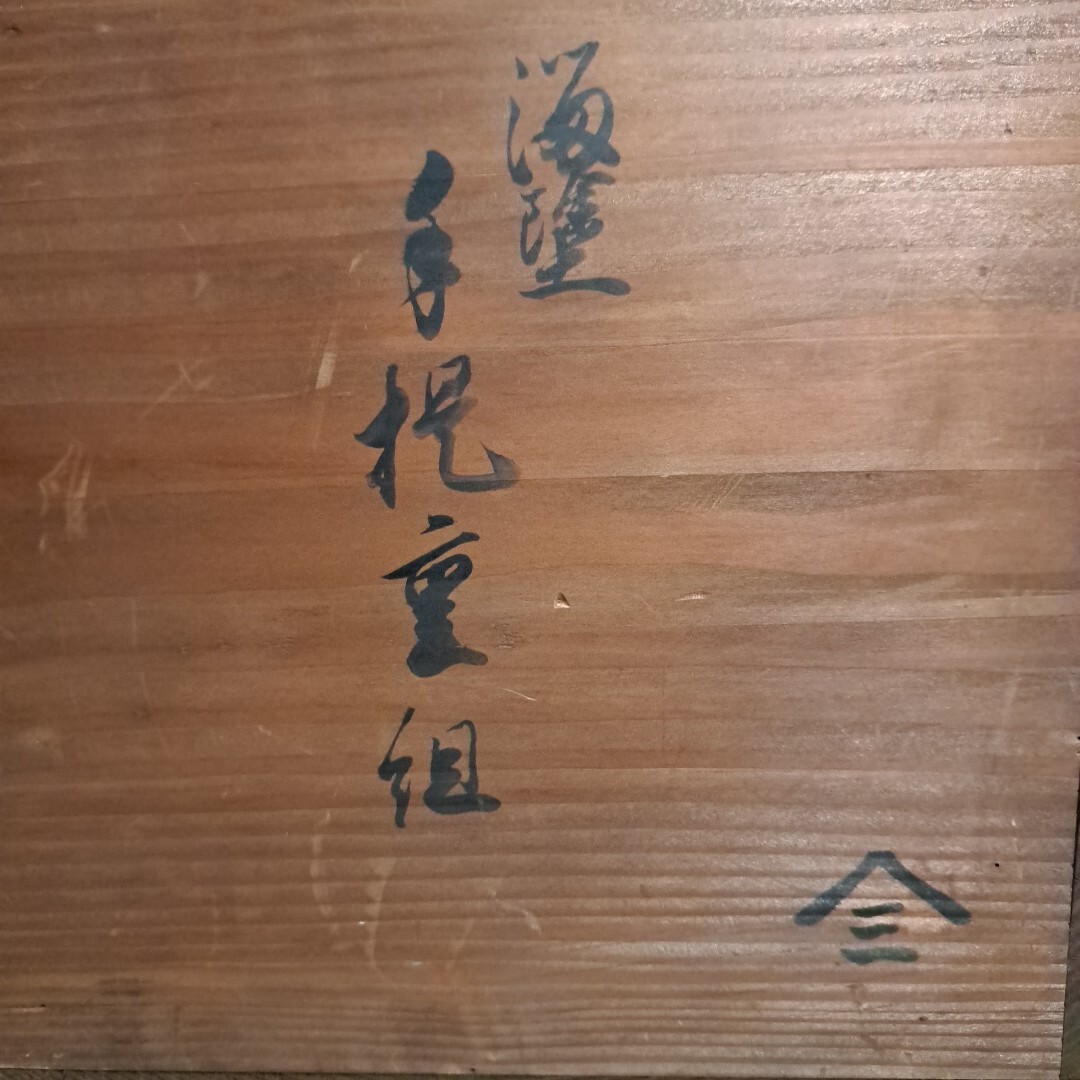 溜塗
手提重組
三